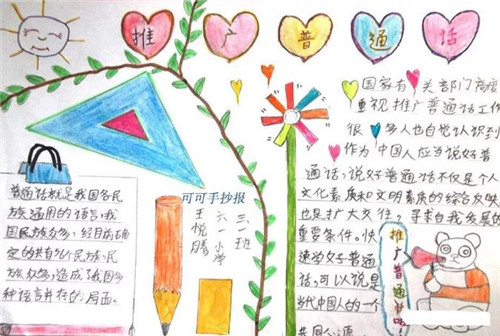 推广普通话
国家有关部门
重视推广普通话工作
很多人也自觉认识到
作为中国人应当说好普
通话,说好普通话不仅是个人
文化素质和文明素质的综合反映
也是扩大交往,寻求自我发展的
重要条件。快
速学好普通
话,可以说是
当代中国人的一个
推广普通话
可可手抄报
三一班
六一小学
王悦
普通话就是我国各民
族通用的语言,我
国民族众多,经目前确
定的共有56个民族,民
族众多,造成了我国多
种语言并存的局面。